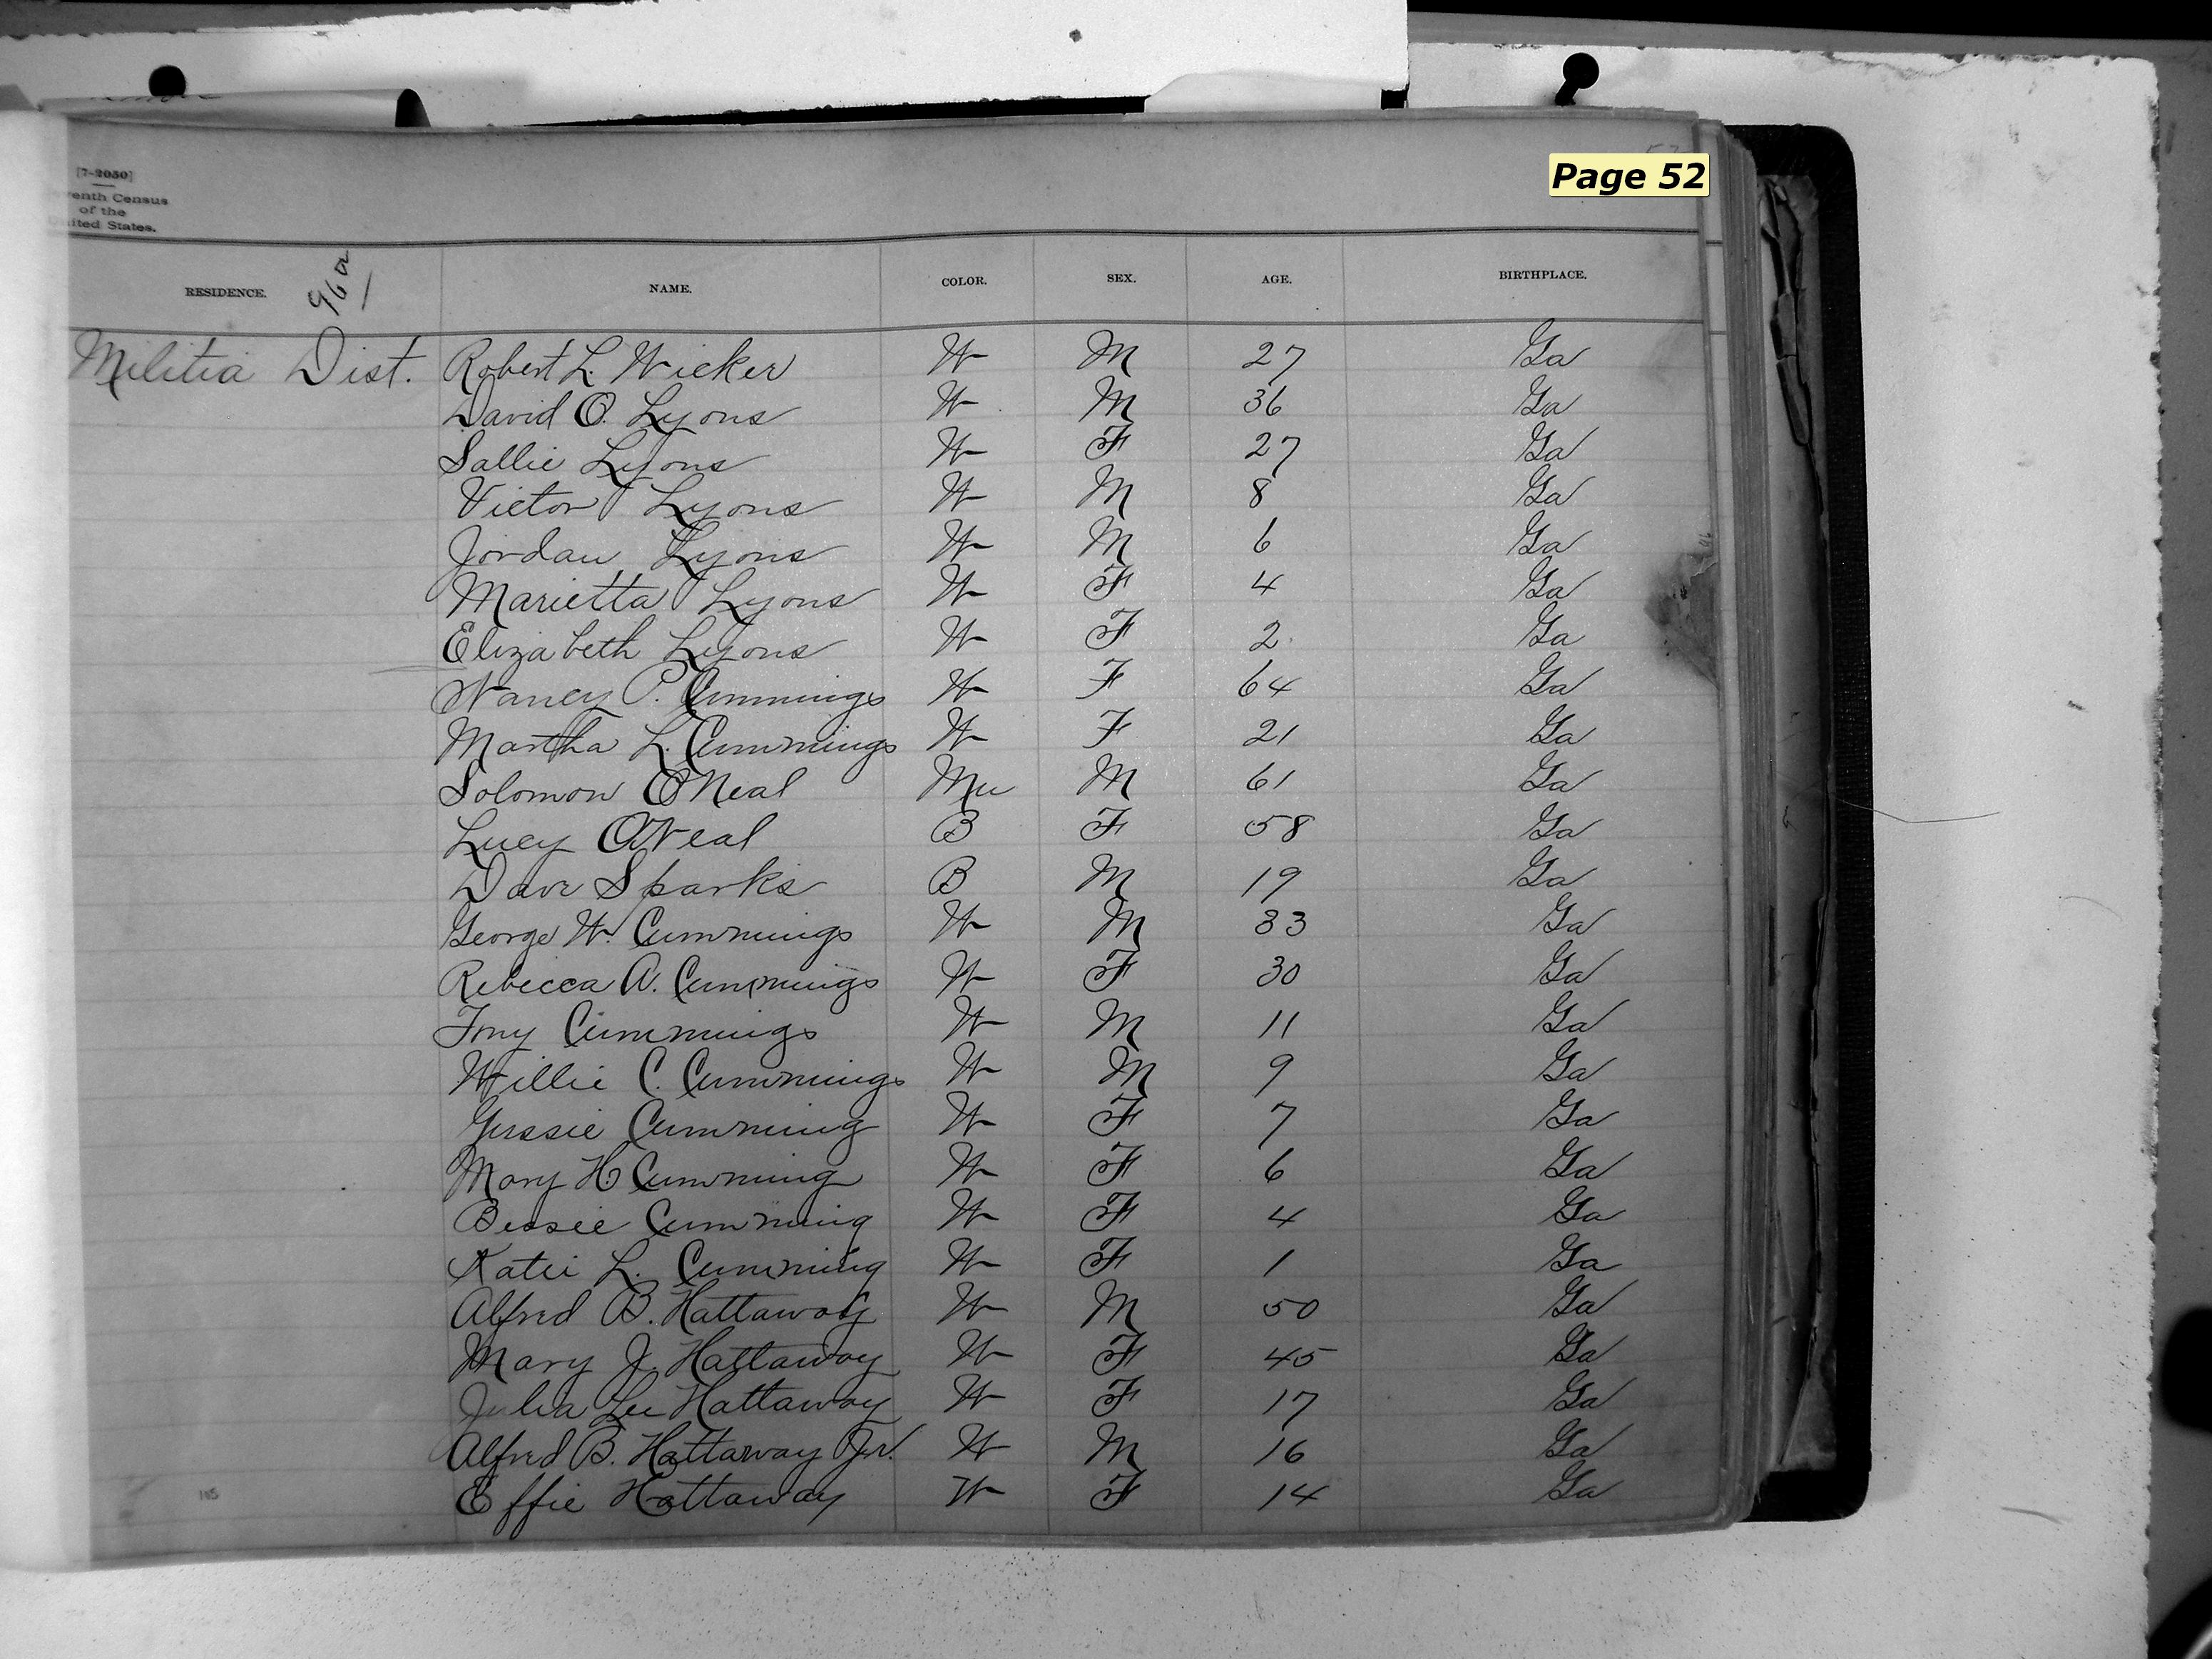 Page 52
[7-2050]
enth Census
of the
ited States.
RESIDENCE. 96 a NAME. COLOR. SEX. AGE. BIRTHPLACE.
Militia Dist. Robert L. Wicker W M 27 Ga
David O. Lyons W M 36 Ga
Sallie Lyons W F 27 Ga
Victor Lyons W M 8 Ga
Jordan Lyons W M 6 Ga
Marietta Lyons W F 4 Ga
Elizabeth Lyons W F 2 Ga
Nancy P. Cummings W F 64 Ga
Martha L. Cummings W F 21 Ga
Solomon O'Neal Mu M 61 Ga
Lucy O'Neal B F 58 Ga
Dave Sparks B M 19 Ga
George W. Cummings W M 33 Ga
Rebecca A. Cummings W F 30 Ga
Tony Cummings W M 11 Ga
Willie C. Cummings W M 9 Ga
Gussie Cumming W F 7 Ga
Mary H Cumming W F 6 Ga
Bessie Cumming W F 4 Ga
Katie L. Cumming W F 1 Ga
Alfred B. Hattaway W M 50 Ga
Mary J. Hattaway W F 45 Ga
Julia Lee Hattaway W F 17 Ga
Alfred B. Hattaway Jr. W M 16 Ga
Effie Hattaway W F 14 Ga